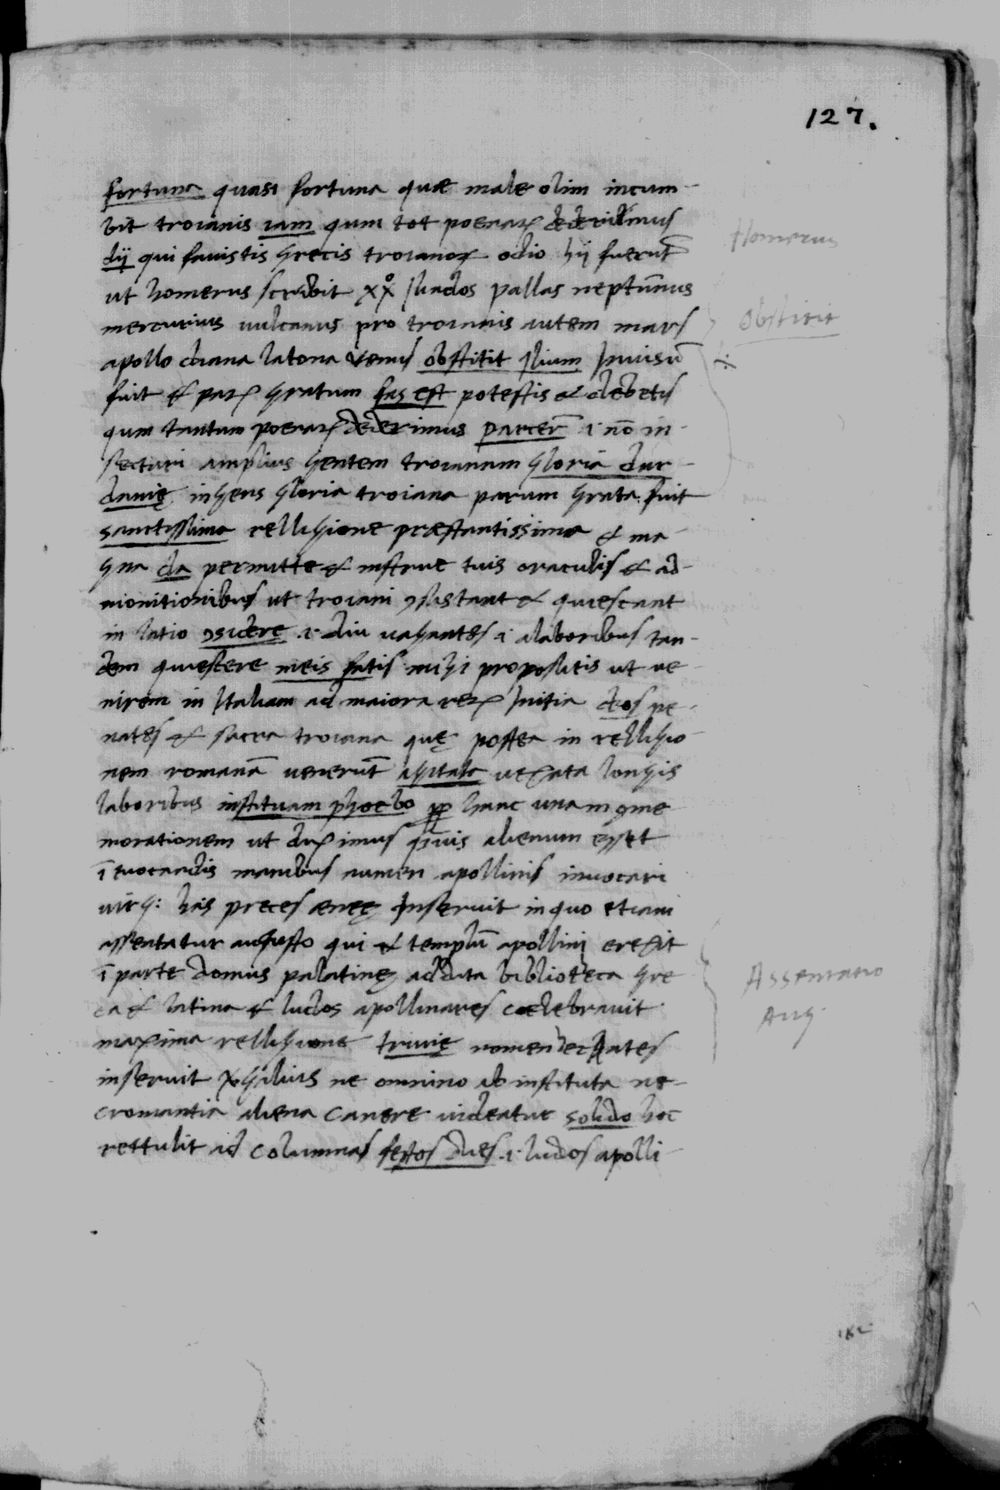 127.
fortuna quasi fortuna quæ male olim incum-
bit troianis iam qum tot poenaꝝ dederimus
dij qui fauistis grecis troianoꝝ odio hij fuerūt
ut homerus scribit xx° Iliados pallas neptūnus
mercurius uulcanus pro troianis autem mars
apollo diana latona uenus obstitit Ilium Inuisū
fuit & paꝝ gratum fas est potestis & debetis
qum tantum poenaꝝ dederimus parcer̄ .i. nō in-
sectari amplius gentem troianam gloria dar-
danię ingens gloria troiana parum grata fuit
sanctissima relligione præstantissima & ma-
gna da permitte & instrue tuis oraculis & ad-
monitionibus ut troiani ꝯsistant & quiescant
in latio ꝯsidere .i. diu uagantes .i. a laboribus tan-
dem quiescere meis fatis mihi propositis ut ue-
nirem in Italiam ad maiora reꝝ Initia deos pe-
nates & sacra troiana quę postea in relligio-
nem romanā uenerūt agitata uexata longis
laboribus instituam phoebo ꝓꝑ hanc unam ꝯme
morationem ut diximus q̄uis alienum esset
ī euocandis manibus numen apollinis inuocari
uirg: has preces æneę Inseruit in quo etiam
assentatur augusto qui & templū apollini erexit
ī parte domus palatinę addita biblioteca gre
ca & latina & ludos apollinares celebrauit
maxima relligione triuię nomen hecates
inseruit ne omnino ab instituta ne-
cromantia aliena canere uideatur solido hoc
rettulit ad columnas festos dies .i. ludos apolli-
Homerus
Obstitit
Assentatio
Aug.